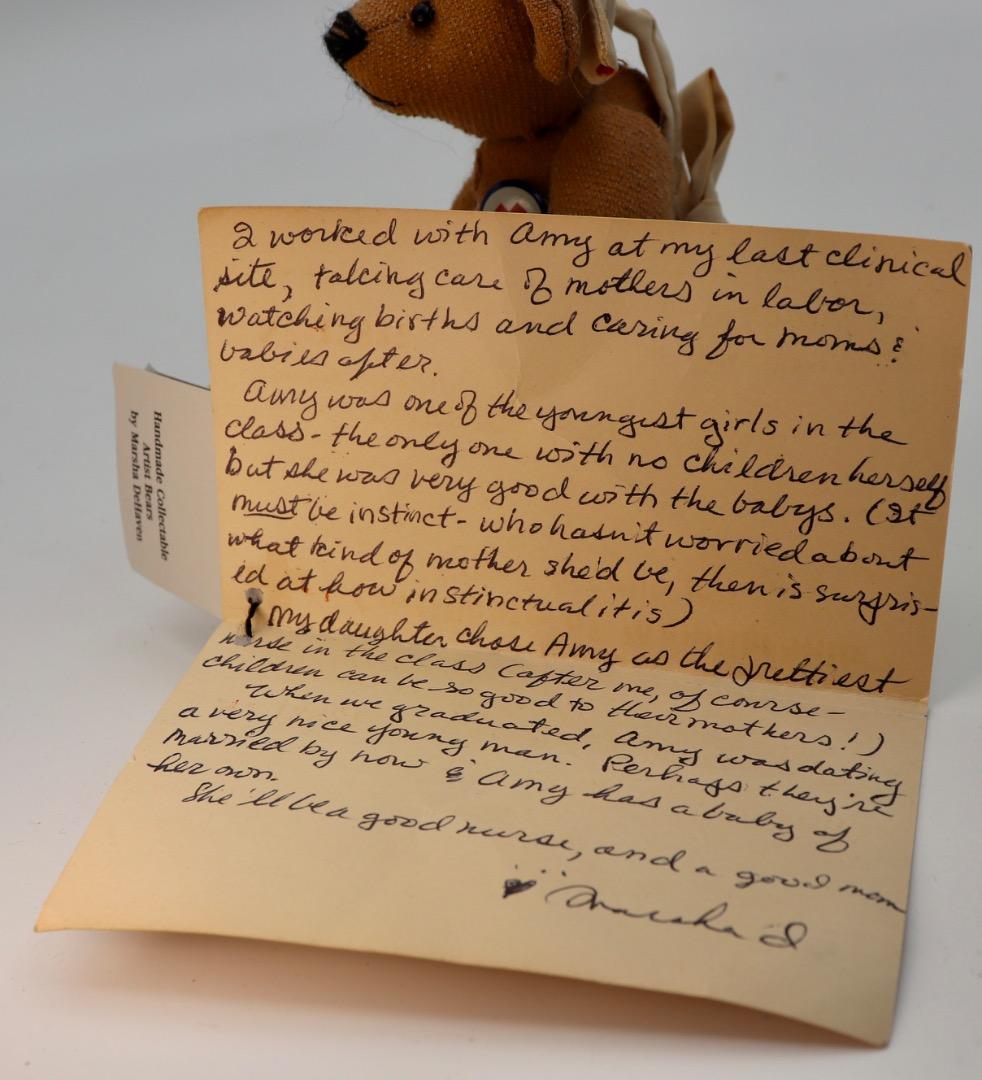 I worked with Amy at my last clinical
site, taking care of mothers in labor,
watching births and caring for moms &
babies after.
Amy was one of the youngest girls in the
class - the only one with no children herself
but she was very good with the babys. (It
must be instinct - who hasn't worried about
what kind of mother she'd be, then is surpris-
ed at how instinctual it is)
My daughter chose Amy as the prettiest
nurse in the class (after me, of course -
children can be so good to their mothers!)
When we graduated, Amy was dating
a very nice young man. Perhaps they're
married by now & Amy has a baby of
her own.
She'll be a good nurse, and a good mom
Marsha D
Handmade Collectable
Artist Bears
by Marsha DeHaven